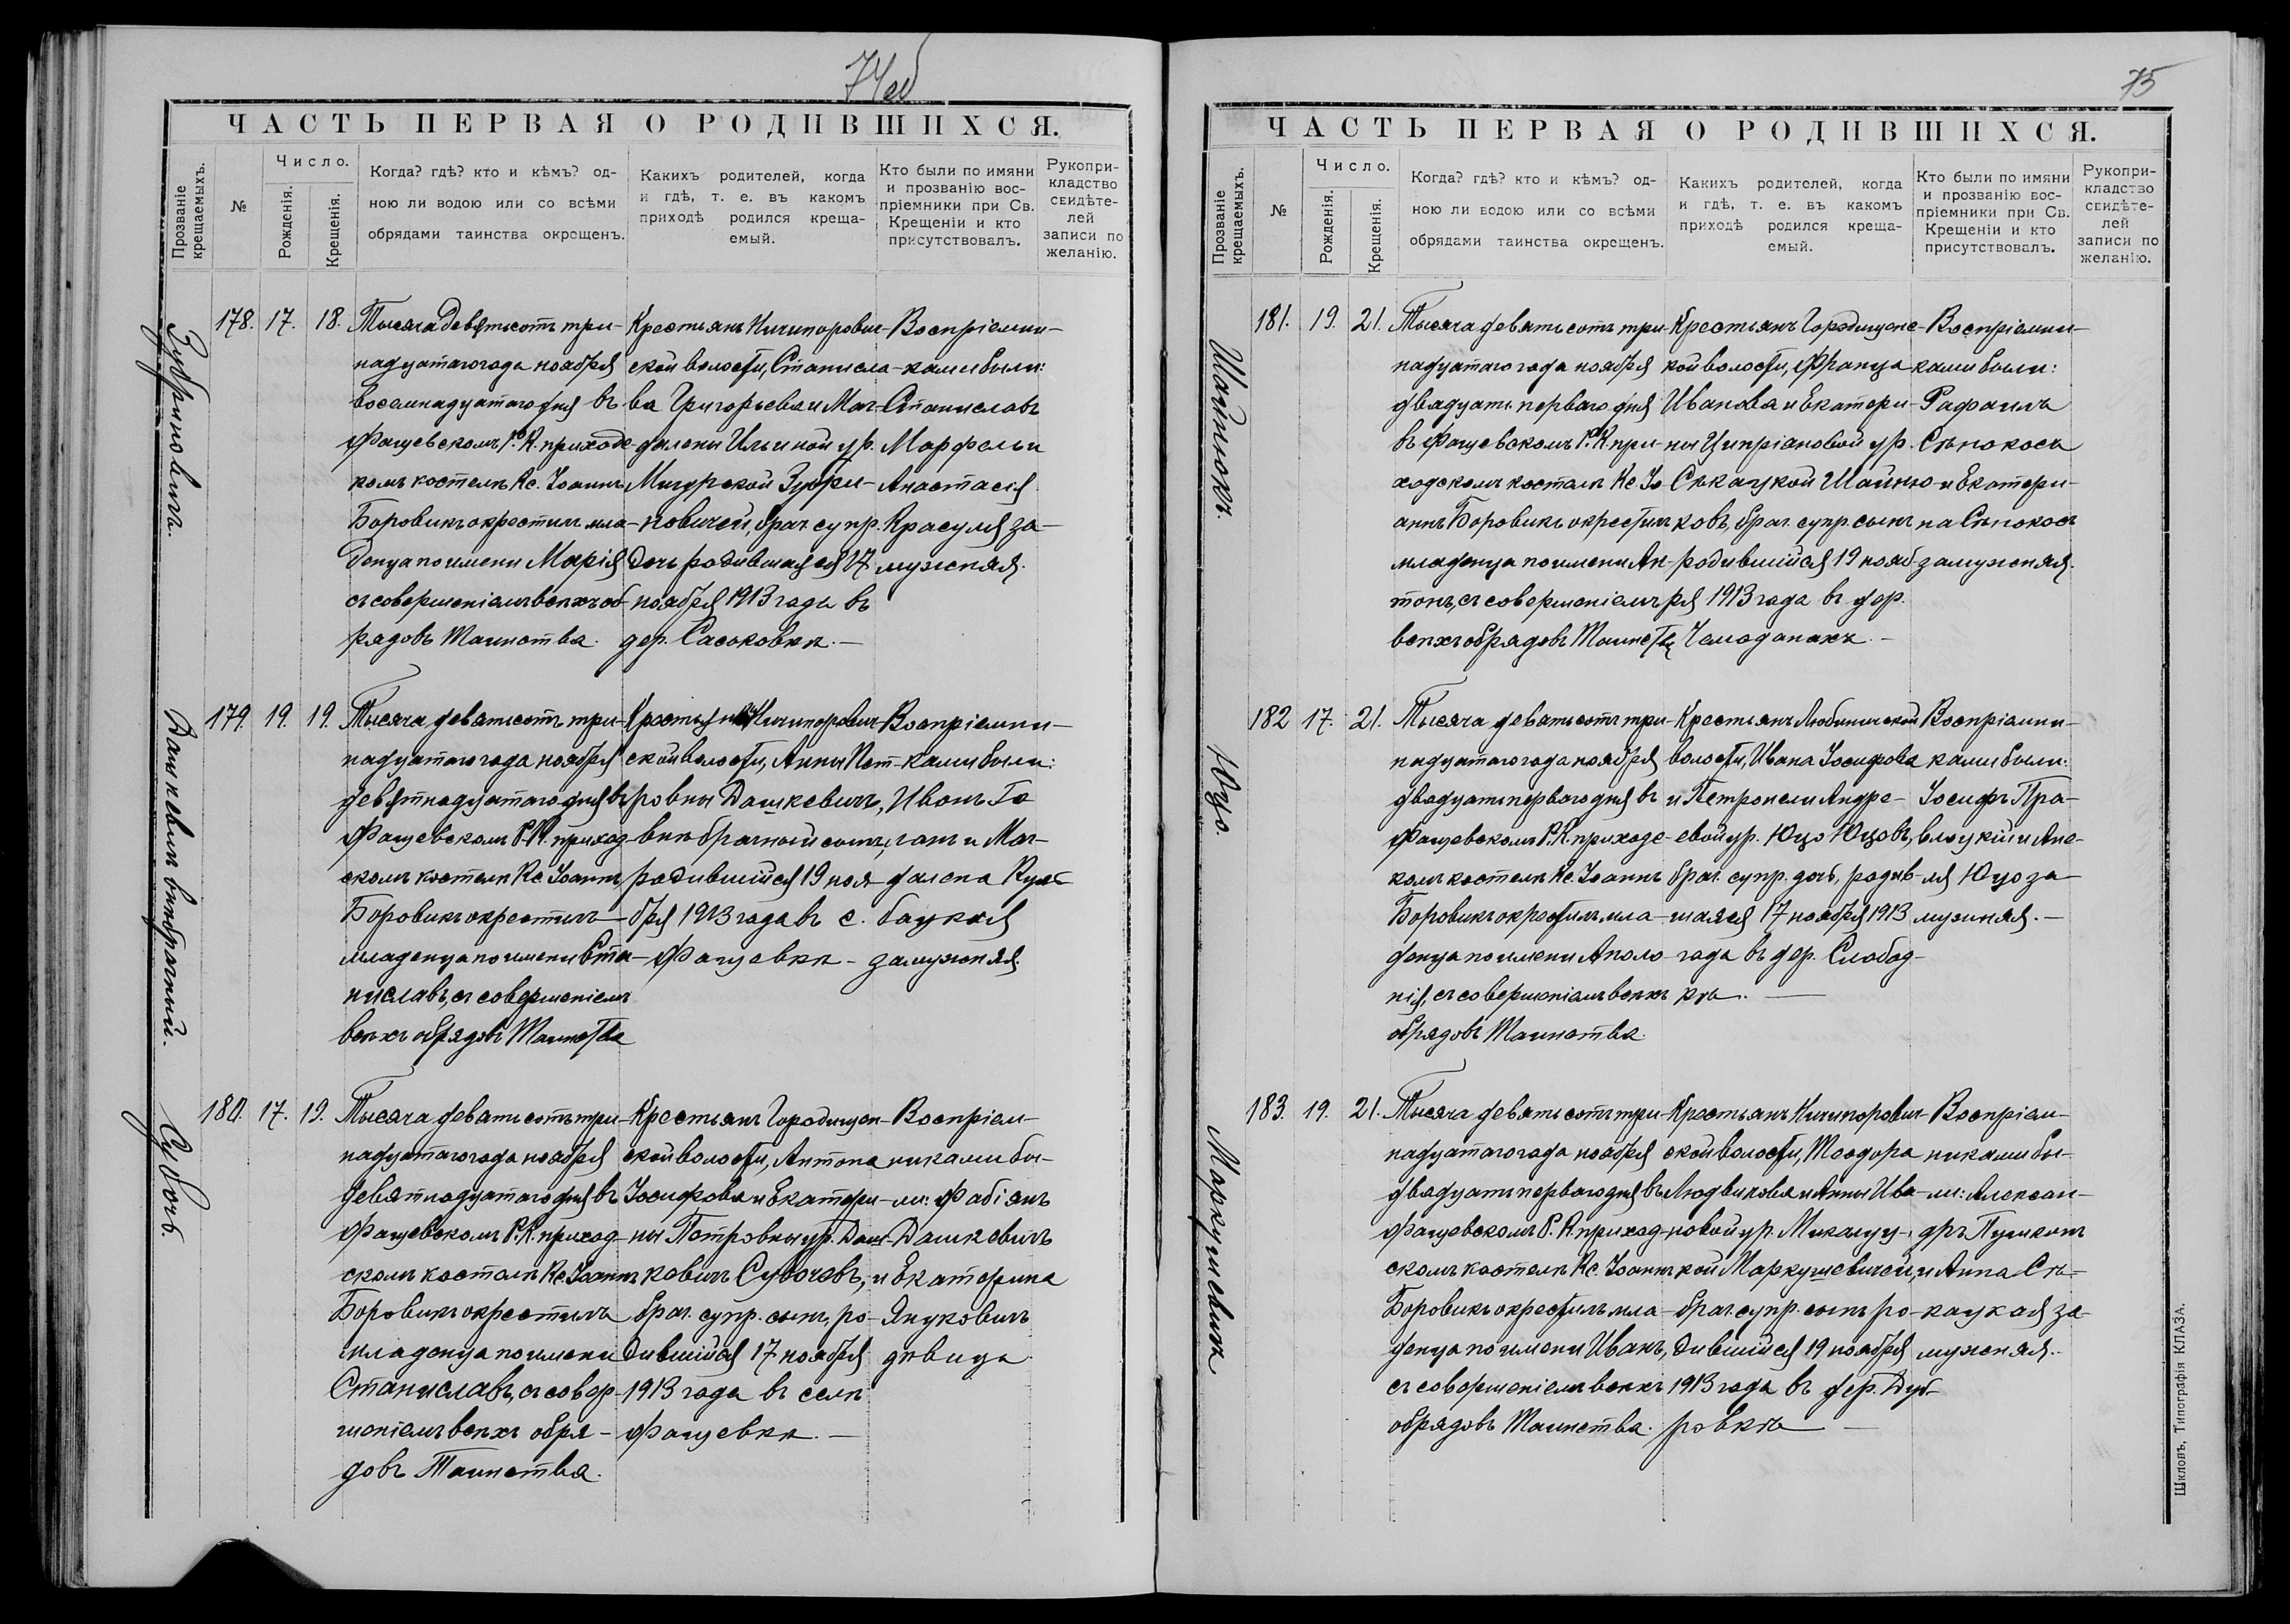 74об
ЧАСТЬ ПЕРВАЯ О РОДИВШИХСЯ.
Прозваніе крещаемыхъ.
№
Число.
Рожденія.
Крещенія.
Когда? гдѣ? кто и кѣмъ? од-
ною ли водою или со всѣми
обрядами таинства окрещенъ.
Какихъ родителей, когда
и гдѣ, т. е. въ какомъ
приходѣ родился креща-
емый.
Кто были по имяни
и прозванію вос-
пріемники при Св.
Крещеніи и кто
присутствовалъ.
Рукопри-
кладство
свидѣте-
лей
записи по
желанію.
178. 17. 18.
Тысяча девятьсотъ три-
надцатаго года ноября
восемнадцатаго дня въ
Фащевскомъ Р. К. приходс-
комъ костелѣ Кс. Іоаннъ
Боровикъ окрестилъ мла-
денца по имени Марія
съ совершеніемъ всѣхъ об-
рядовъ Таинства.
Крестьянъ Ничипорович-
ской волости, Станисла-
ва Григорьева и Маг-
далены Ильиной ур.
Мигурской
новичей, брач. супр.
дочь родившаяся 17
ноября 1913 года въ
дер. Сасоковкѣ.
Воспріемни-
ками были:
Станиславъ
и
Анастасія
Красуля за-
мужняя.
Дашкевичъ внѣбрачный.
179. 19. 19.
Тысяча девятьсотъ три-
надцатаго года ноября
девятнадцатаго дня въ
Фащевскомъ Р. К. приход-
скомъ костелѣ Кс. Іоаннъ
Боровикъ окрестилъ
младенца по имени Ста-
ниславъ, съ совершеніемъ
всѣхъ обрядовъ Таинства
Ничипорович-
ской волости, Анны Пет-
ровны Дашкевичъ,
внѣбрачный сынъ,
родившійся 19 ноя-
бря 1913 года въ с.
Фащевкѣ
Воспріемни-
ками были:
Иванъ
и Маг-
далена
бацкая
замужняя.
Субочъ.
180. 17. 19.
Тысяча девятьсотъ три-
надцатаго года ноября
девятнадцатаго дня въ
Фащевскомъ Р. К. приход-
скомъ костелѣ Кс. Іоаннъ
Боровикъ окрестилъ
младенца по имени
Станиславъ, съ совер-
шеніемъ всѣхъ обря-
довъ Таинства.
Крестьянъ Городищен-
ской волости, Антона
Іосифова и Екатери-
ны Петровны ур. Даш-
кевичъ Субочевъ,
брач. супр. сынъ, ро-
дившійся 17 ноября
1913 года въ селѣ
Фащевкѣ.
Воспріем-
никами бы-
ли: Фабіянъ
Дашкевичъ
и Екатерина
Януковичъ
дѣвица
75
ЧАСТЬ ПЕРВАЯ О РОДИВШИХСЯ.
Прозваніе крещаемыхъ.
№
Число.
Рожденія.
Крещенія.
Когда? гдѣ? кто и кѣмъ? од-
ною ли водою или со всѣми
обрядами таинства окрещенъ.
Какихъ родителей, когда
и гдѣ, т. е. въ какомъ
приходѣ родился креща-
емый.
Кто были по имяни
и прозванію вос-
пріемники при Св.
Крещеніи и кто
присутствовалъ.
Рукопри-
кладство
свидѣте-
лей
записи по
желанію.
Шайнюкъ.
181. 19. 21.
Тысяча девятьсотъ три-
надцатаго года ноября
двадцать перваго дня
въ Фащевскомъ Р. К. при-
ходскомъ костелѣ Кс Іо-
аннъ Боровикъ окрестилъ
младенца по имени Ан-
тонъ, съ совершеніемъ
всѣхъ обрядовъ Таинства
Крестьянъ Городищенс-
кой волости, Франца
Иванова и Екатери-
ны Ципріановой ур.
Сѣкацкой Шайню-
ковъ, брач. супр. сынъ
родившійся 19 нояб-
ря 1913 года въ дер.
Чамоданахъ.
Воспріемни-
ками были:
Рафаилъ
Сѣнокосъ
и Екатери-
на Сѣнокосъ
замужняя.
Юцо.
182 17. 21.
Тысяча девятьсотъ три-
надцатаго года ноября
двадцать перваго дня въ
Фащевскомъ Р. К. приходс-
комъ костелѣ Кс. Іоаннъ
Боровикъ окрестилъ мла-
денца по имени Аполо-
нія, съ совершеніемъ всѣхъ
обрядовъ Таинства.
Крестьянъ Любиничской
волости, Ивана Іосифова
и Петронели Андре-
евой ур. Юцо Юцовъ,
брач. супр. дочь, родив-
шаяся 17 ноября 1913
года въ дер. Слобод-
кѣ.
Воспріемни-
ками были:
Іосифъ
и Ане-
ля Юцо за-
мужняя.
Маркушевичъ
183. 19. 21.
Тысяча девятьсотъ три-
надцатаго года ноября
двадцать перваго дня въ
Фащевскомъ Р. К. приход-
скомъ костелѣ Кс. Іоаннъ
Боровикъ окрестилъ мла-
денца по имени Иванъ,
съ совершеніемъ всѣхъ
обрядовъ Таинства.
Крестьянъ Ничипорович-
ской волости, Теодора
Людвикова и Анны Ива-
новой ур.
Маркушевичей,
брач. супр. сынъ ро-
дившійся 19 ноября
1913 года въ дер. Дуб-
ровкѣ
Воспріем-
никами бы-
ли: Алексан-
дръ
и Анна Сѣ-
кацкая за-
мужняя.
Шкловъ, Типографія КЛАЗА.